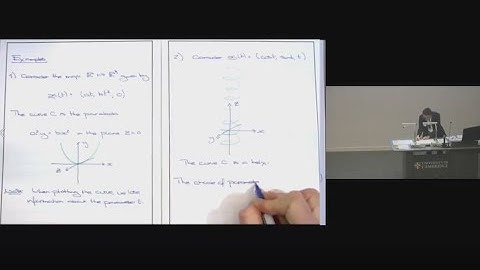 Examples
1) Consider the map ℝ → ℝ³ given by
x(t) = (at, bt², 0)
The curve C is the parabola
a²y = bx² in the plane z=0
y
x
z
Note: When plotting the curve, we lose
information about the parameter t.
2) Consider x(t) = (cost, sint, t)
z
y
x
The curve C is a helix.
The choice of parameter
UNIVERSITY OF
CAMBRIDGE